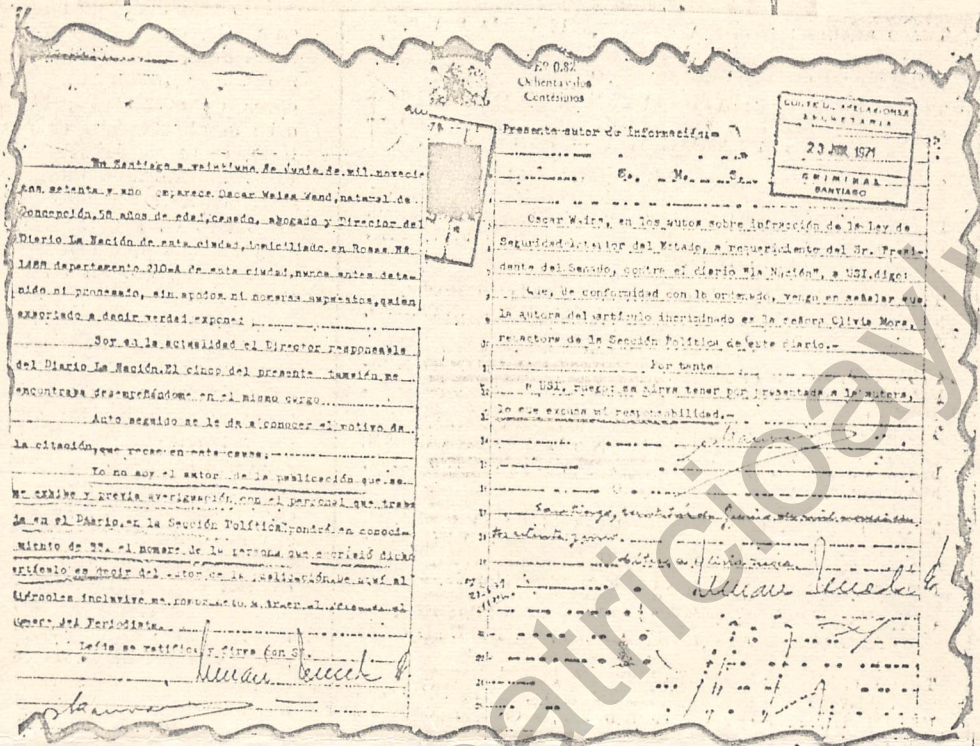 En Santiago a veintiuno de Junio de mil novecie
tos setenta y uno comparece Oscar Waiss Wand, natural de
Concepción, 58 años de edad, casado, abogado y Director del
Diario La Nación de esta ciudad, domiciliado en Rosas Nº
departamento 210-A de esta ciudad, nunca antes dete-
nido ni procesado, sin apodos ni nombres supuestos, quién
exhortado a decir verdad expone:
Soy en la actualidad el Director responsable
del Diario La Nación. El cinco del presente también me
encontraba desempeñándome en el mismo cargo
Acto seguido se le da a conocer el motivo de
la citación, que recae en esta causa.
Yo no soy el autor de la publicación que se
me exhibe y previa averiguación con el personal que traba
ja en el Diario, en la Sección Política, pondré en conoci
miento de SS. el nombre de la persona que escribió dicho
artículo es decir del autor de la publicación. De aquí al
miércoles inclusive me comprometo a traer al
nombre del Periodista.
Leída se ratificó y firma con SS.
Eº 0.82
Ochenta y dos
Centésimos
CORTE DE APELACIONES
SECRETARIA
23 JUN. 1971
CRIMINAL
SANTIAGO
Presenta autor de Información.-
Oscar Waiss, en los autos sobre infracción de la Ley de
Seguridad Interior del Estado, a requerimiento del Sr. Presi-
dente del Senado, contra el diario "La Nación", a USI, digo:
Que, de conformidad con lo ordenado, vengo en señalar que
la autora del artículo incriminado es la señora Olivia Mora,
redactora de la Sección Política de este diario.-
Por tanto
a USI. ruego: se sirva tener por presentada a la autora,
lo que excusa mi responsabilidad.-
Santiago, de Junio de mil novecientos
setenta y uno.
patricioaylw